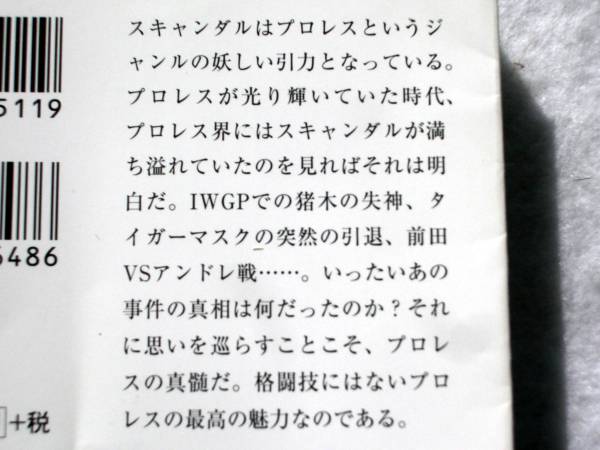 スキャンダルはプロレスというジ
ャンルの妖しい引力となっている。
プロレスが光り輝いていた時代、
プロレス界にはスキャンダルが満
ち溢れていたのを見ればそれは明
白だ。IWGPでの猪木の失神、タ
イガーマスクの突然の引退、前田
VSアンドレ戦……。いったいあの
事件の真相は何だったのか？それ
に思いを巡らすことこそ、プロレ
スの真髄だ。格闘技にはないプロ
レスの最高の魅力なのである。
5119
6486
+税